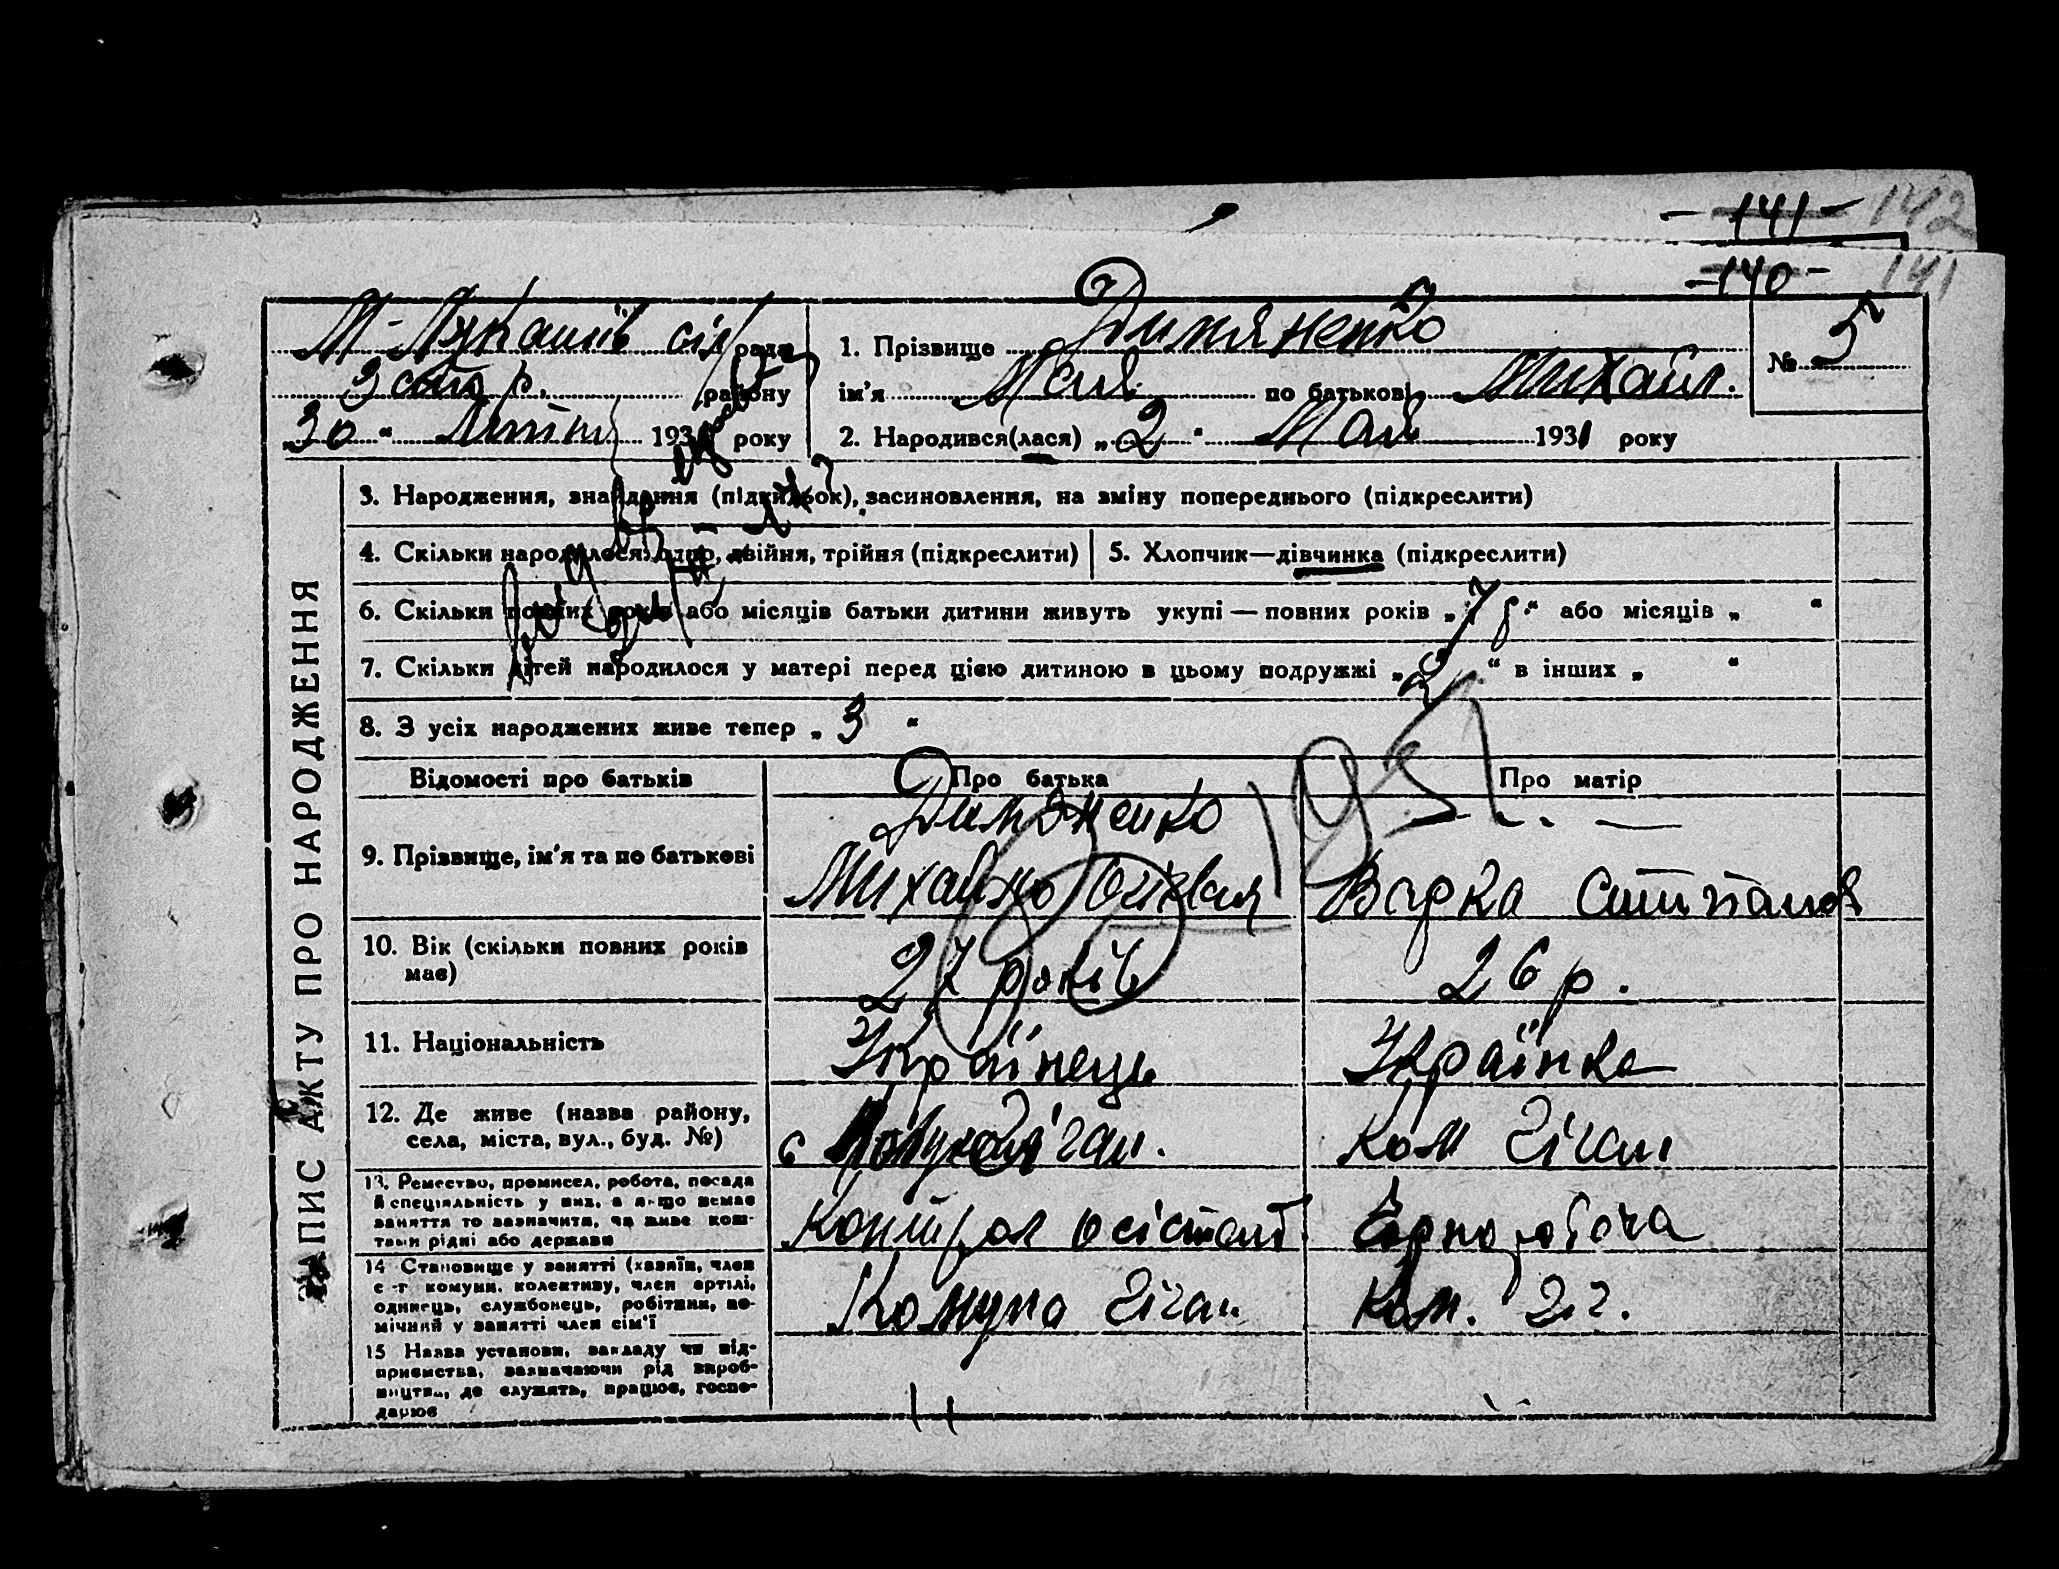 - 141 - 142
- 140 - 141
М-Лукашів сіл рада
район
„30“ Липня 193 року
1. Прізвище Дим'яненко
ім'я Мая по батькові Михайл.
№ 5
2. Народився(лася) „2“ Мая 1931 року
ЗАПИС АКТУ ПРО НАРОДЖЕННЯ
3. Народження, знайдення (підкидьок), засиновлення, на зміну попереднього (підкреслити)
4. Скільки народилося: одно, двійня, трійня (підкреслити)
5. Хлопчик—дівчинка (підкреслити)
6. Скільки повних років або місяців батьки дитини живуть укупі — повних років „7 р.“ або місяців „ “
7. Скільки дітей народилося у матері перед цією дитиною в цьому подружжі „2“ в інших „ “
8. З усіх народжених живе тепер „3“
Відомості про батьків Про батька Про матір
1931
9. Прізвище, ім'я та по батькові
Дим'яненко
Михайло Варка
10. Вік (скільки повних років має)
27 років 26 р.
11. Національність Українець Українка
12. Де живе (назва району, села, міста, вул., буд. №)
с Ком Гіган
13. Ремество, промисел, робота, посада
й спеціяльність у них, а якщо немає
заняття то зазначити, чи живе кош-
тами рідні або держави
Контрол Осістент Чорноробоча
14 Становище у занятті (хазяїн, член
с.-г. комуни, колективу, член артілі,
одинець, службовець, робітник, по-
мічний у занятті член сім'ї
Комуна Гіган Ком. Гіг.
15 Назва установи, закладу чи під-
приємства, зазначаючи рід вироб-
ництва, де служить, працює, госпо-
дарює